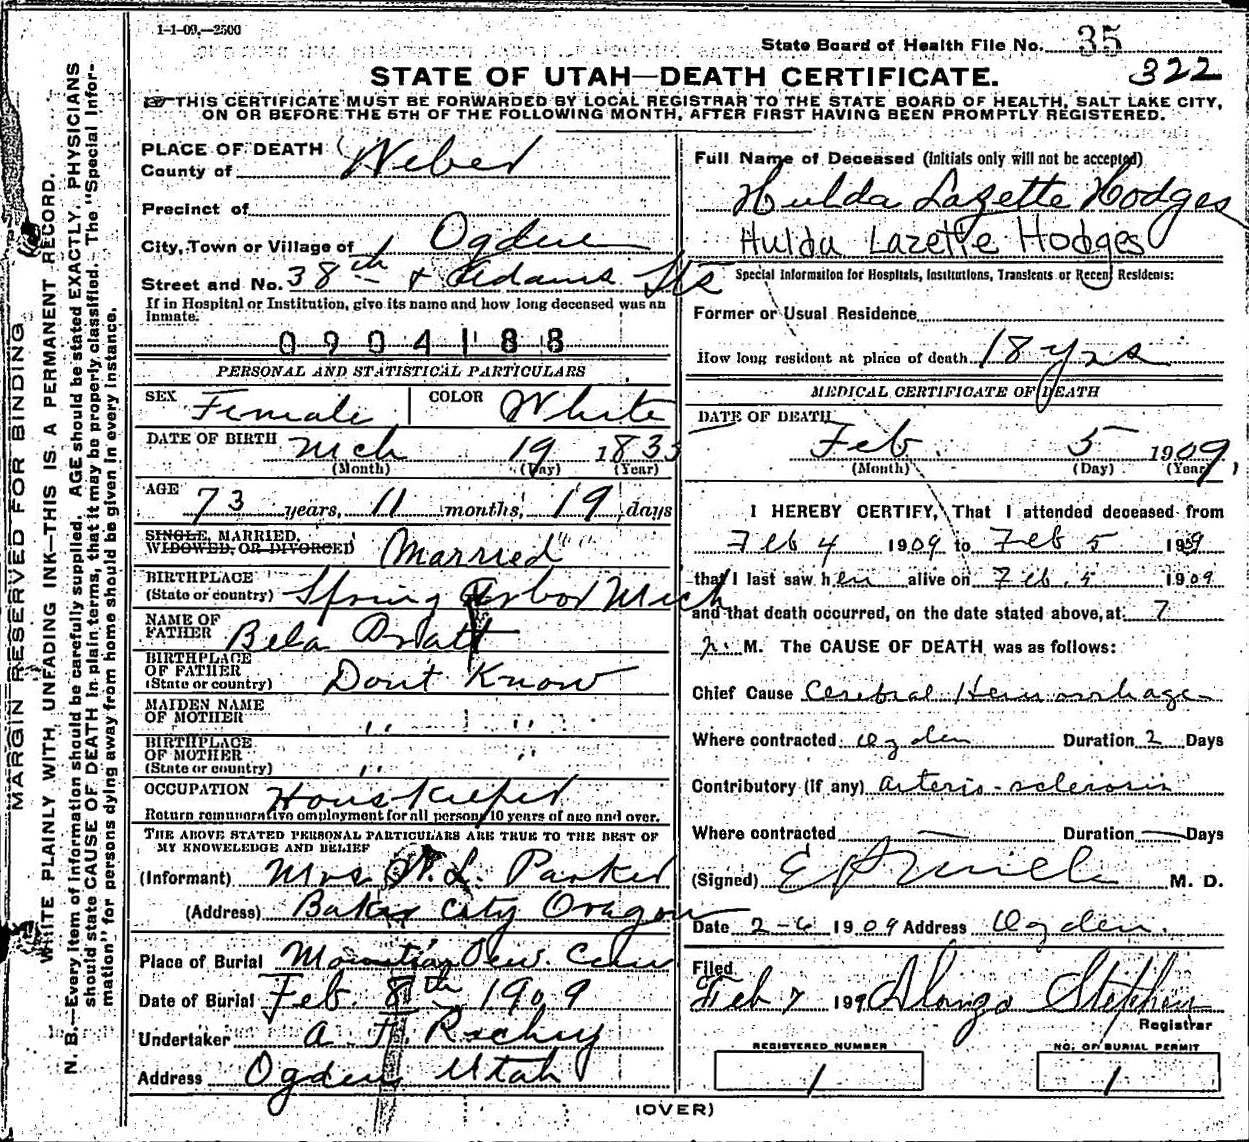 1-1-09,—2500
State Board of Health File No. 35
322
STATE OF UTAH—DEATH CERTIFICATE.
THIS CERTIFICATE MUST BE FORWARDED BY LOCAL REGISTRAR TO THE STATE BOARD OF HEALTH, SALT LAKE CITY,
ON OR BEFORE THE 5TH OF THE FOLLOWING MONTH, AFTER FIRST HAVING BEEN PROMPTLY REGISTERED.
MARGIN RESERVED FOR BINDING
WRITE PLAINLY WITH UNFADING INK—THIS IS A PERMANENT RECORD.
N. B.—Every item of information should be carefully supplied. AGE should be stated EXACTLY. PHYSICIANS
should state CAUSE OF DEATH in plain terms, that it may be properly classified. The "Special Infor-
mation" for persons dying away from home should be given in every instance.
PLACE OF DEATH
County of Weber
Precinct of
City, Town or Village of Ogden
Street and No. 38th & Adams Sts
If in Hospital or Institution, give its name and how long deceased was an
inmate.
0904188
PERSONAL AND STATISTICAL PARTICULARS
SEX Female COLOR White
DATE OF BIRTH Mch 19 1835
(Month) (Day) (Year)
AGE 73 years, 11 months, 19 days
SINGLE, MARRIED,
WIDOWED, OR DIVORCED Married
BIRTHPLACE
(State or country) Spring Arbor Mich
NAME OF
FATHER Bela Pratt
BIRTHPLACE
OF FATHER
(State or country) Dont Know
MAIDEN NAME
OF MOTHER " "
BIRTHPLACE
OF MOTHER
(State or country) " "
OCCUPATION Houskeeper
Return remunerative employment for all persons 10 years of age and over.
THE ABOVE STATED PERSONAL PARTICULARS ARE TRUE TO THE BEST OF
MY KNOWLEDGE AND BELIEF
(Informant) Mrs W. L. Parker
(Address) Baker City Oragon
Place of Burial Mountian View Cem
Date of Burial Feb. 8th 1909
Undertaker A. F. Richey
Address Ogden Utah
Full Name of Deceased (Initials only will not be accepted)
Hulda Lazette Hodges
Hulda Lazette Hodges
Special Information for Hospitals, Institutions, Transients or Recent Residents:
Former or Usual Residence
How long resident at place of death 18 yrs
MEDICAL CERTIFICATE OF DEATH
DATE OF DEATH
Feb. 5 1909
(Month) (Day) (Year)
I HEREBY CERTIFY, That I attended deceased from
Feb 4 1909 to Feb 5 1909
that I last saw her alive on Feb. 5 1909
and that death occurred, on the date stated above, at 7
M. The CAUSE OF DEATH was as follows:
Chief Cause Cerebral Hemorrhage
Where contracted Ogden Duration 2 Days
Contributory (if any) Arterio-sclerosis
Where contracted — Duration — Days
(Signed) M. D.
Date 2-6 1909 Address Ogden.
Filed
Feb 7 190 Alonzo Stephen
Registrar
REGISTERED NUMBER
1
NO. OF BURIAL PERMIT
1
(OVER)